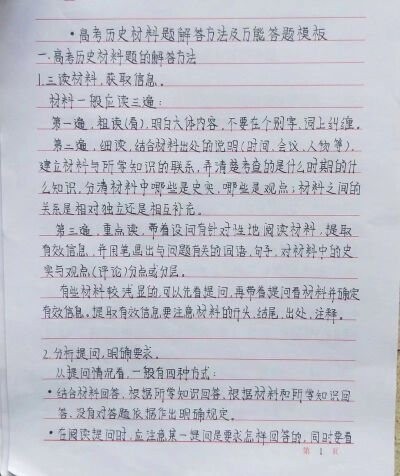 ·高考历史材料题解答方法及万能答题模板
一.高考历史材料题的解答方法
1.三读材料,获取信息。
材料一般应读三遍:
第一遍,粗读(看),明白大体内容,不要在个别字、词上纠缠。
第二遍,细读,结合材料出处的说明(时间、会议、人物等),
建立材料与所学知识的联系,弄清楚考查的是什么时期的什
么知识,分清材料中哪些是史实,哪些是观点;材料之间的
关系是相对独立还是相互补充。
第三遍,重点读,带着设问有针对性地阅读材料,提取
有效信息,并用笔画出与问题有关的词语、句子,对材料中的史
实与观点(评论)分点或分层。
有些材料较浅显的,可以先看提问,再带着提问看材料并确定
有效信息。提取有效信息要注意材料的开头、结尾、出处、注释。
2.分析提问,明确要求。
从提问情况看,一般有四种方式:
·结合材料回答、根据所学知识回答、根据材料和所学知识回
答、没有对答题依据作出明确规定。
·在阅读提问时,应注意某一提问是要求怎样回答的,同时要看
第 1 页